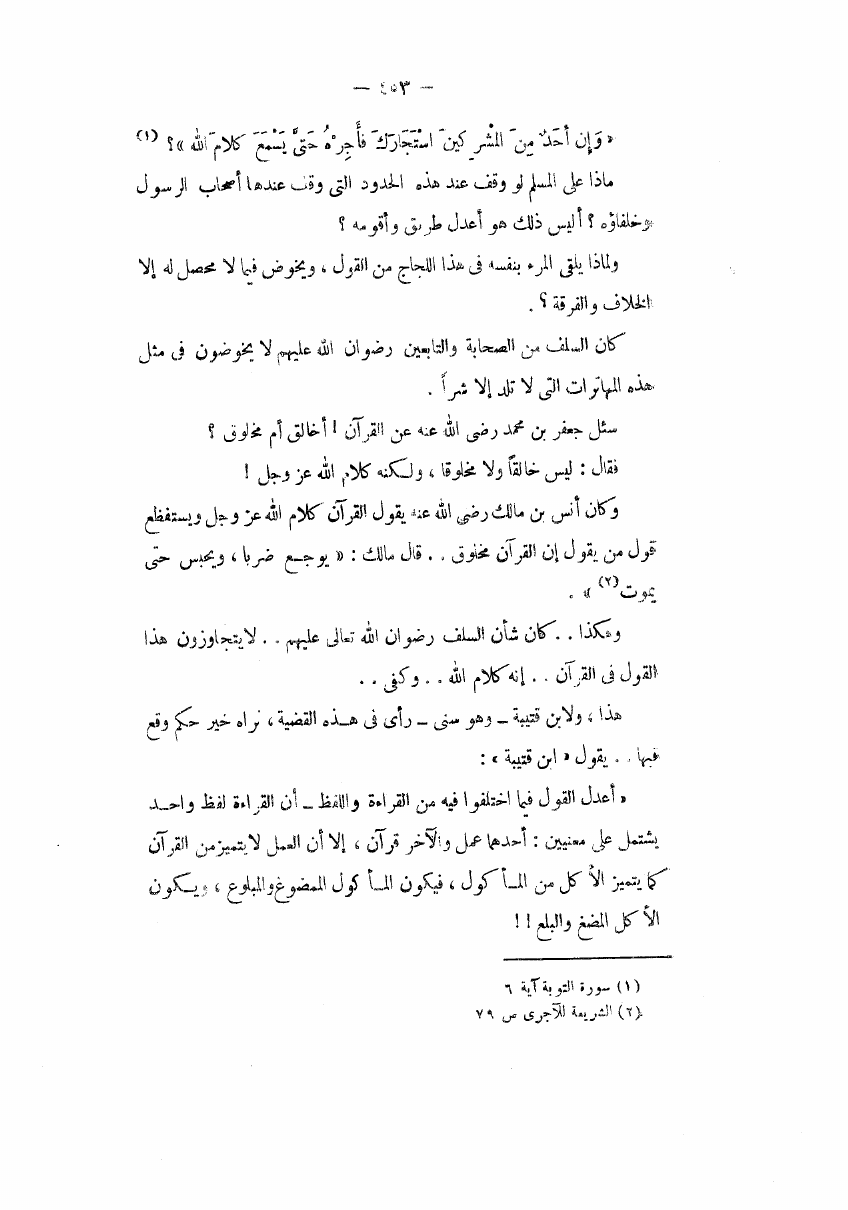 — ٤٥٣ —
« وَإِن أَحَدٌ مِنَ المُشْرِكينَ اسْتَجَارَكَ فأَجِرْهُ حَتَّى يَسْمَعَ كلامَ الله »؟ (١)
ماذا على المسلم لو وقف عند هذه الحدود التى وقف عندها أصحاب الرسول
وخلفاؤه ؟ أليس ذلك هو أعدل طريق وأقومه ؟
ولماذا يلقى المرء بنفسه فى هذا اللجاج من القول ، ويخوض فيما لا محصل له إلا
الخلاف والفرقة ؟ .
كان السلف من الصحابة والتابعين رضوان الله عليهم لا يخوضون فى مثل
هذه المهاترات التى لا تلد إلا شراً .
سئل جعفر بن محمد رضى الله عنه عن القرآن ! أخالق أم مخلوق ؟
فقال : ليس خالقاً ولا مخلوقا ، ولكنه كلام الله عز وجل !
وكان أنس بن مالك رضى الله عنه يقول القرآن كلام الله عز وجل ويستفظع
قول من يقول إن القرآن مخلوق . . قال مالك : « يوجع ضربا ، ويحبس حتى
يموت (٢) » .
وهكذا . . كان شأن السلف رضوان الله تعالى عليهم . . لا يتجاوزون هذا
القول فى القرآن . . إنه كلام الله . . وكفى . .
هذا ، ولابن قتيبة – وهو سنى – رأى فى هذه القضية ، نراه خير حكم وقع
فيها . . يقول « ابن قتيبة » :
« أعدل القول فيما اختلفوا فيه من القراءة واللفظ – أن القراءة لفظ واحد
يشتمل على معنيين : أحدهما عمل والآخر قرآن ، إلا أن العمل لا يتميز من القرآن
كما يتميز الأكل من المأكول ، فيكون المأكول الممضوغ والمبلوع ، ويكون
الأكل المضغ والبلع ! !
(١) سورة التوبة آية ٦
(٢) الشريعة للآجرى ص ٧٩